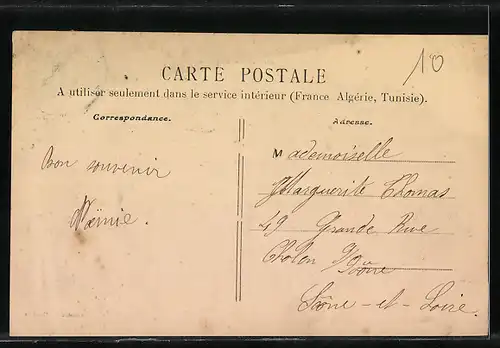 10
CARTE POSTALE
A utiliser seulement dans le service intérieur (France Algérie, Tunisie).
Correspondance.
Adresse.
Bon souvenir
Mademoiselle
Marguerite Thomas
49 Grande Rue
Chalon s/ Saône
Saône-et-Loire.